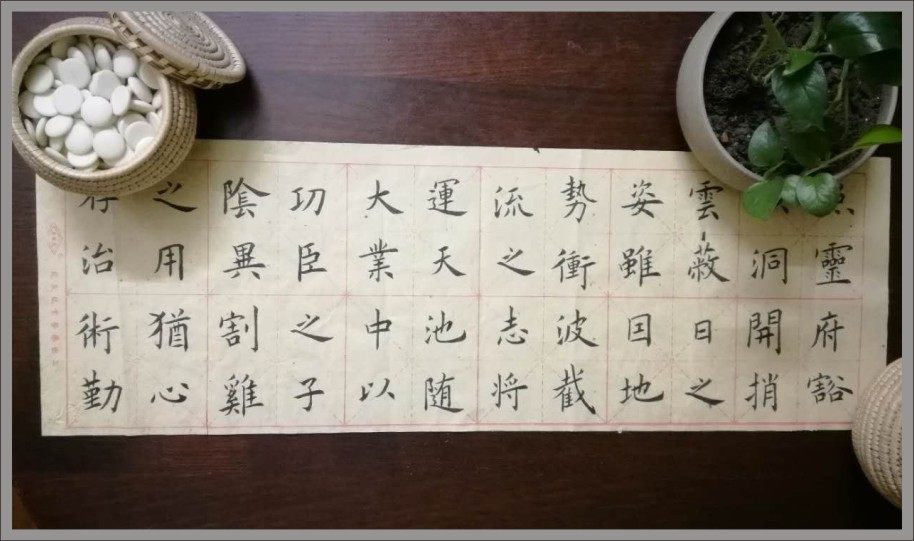 靈府豁
洞開捎
雲蔽日之
姿雖囙地
勢衝波截
流之志将
運天池随
大業中以
功臣之子
陰異割雞
之用猶心
存治術勤